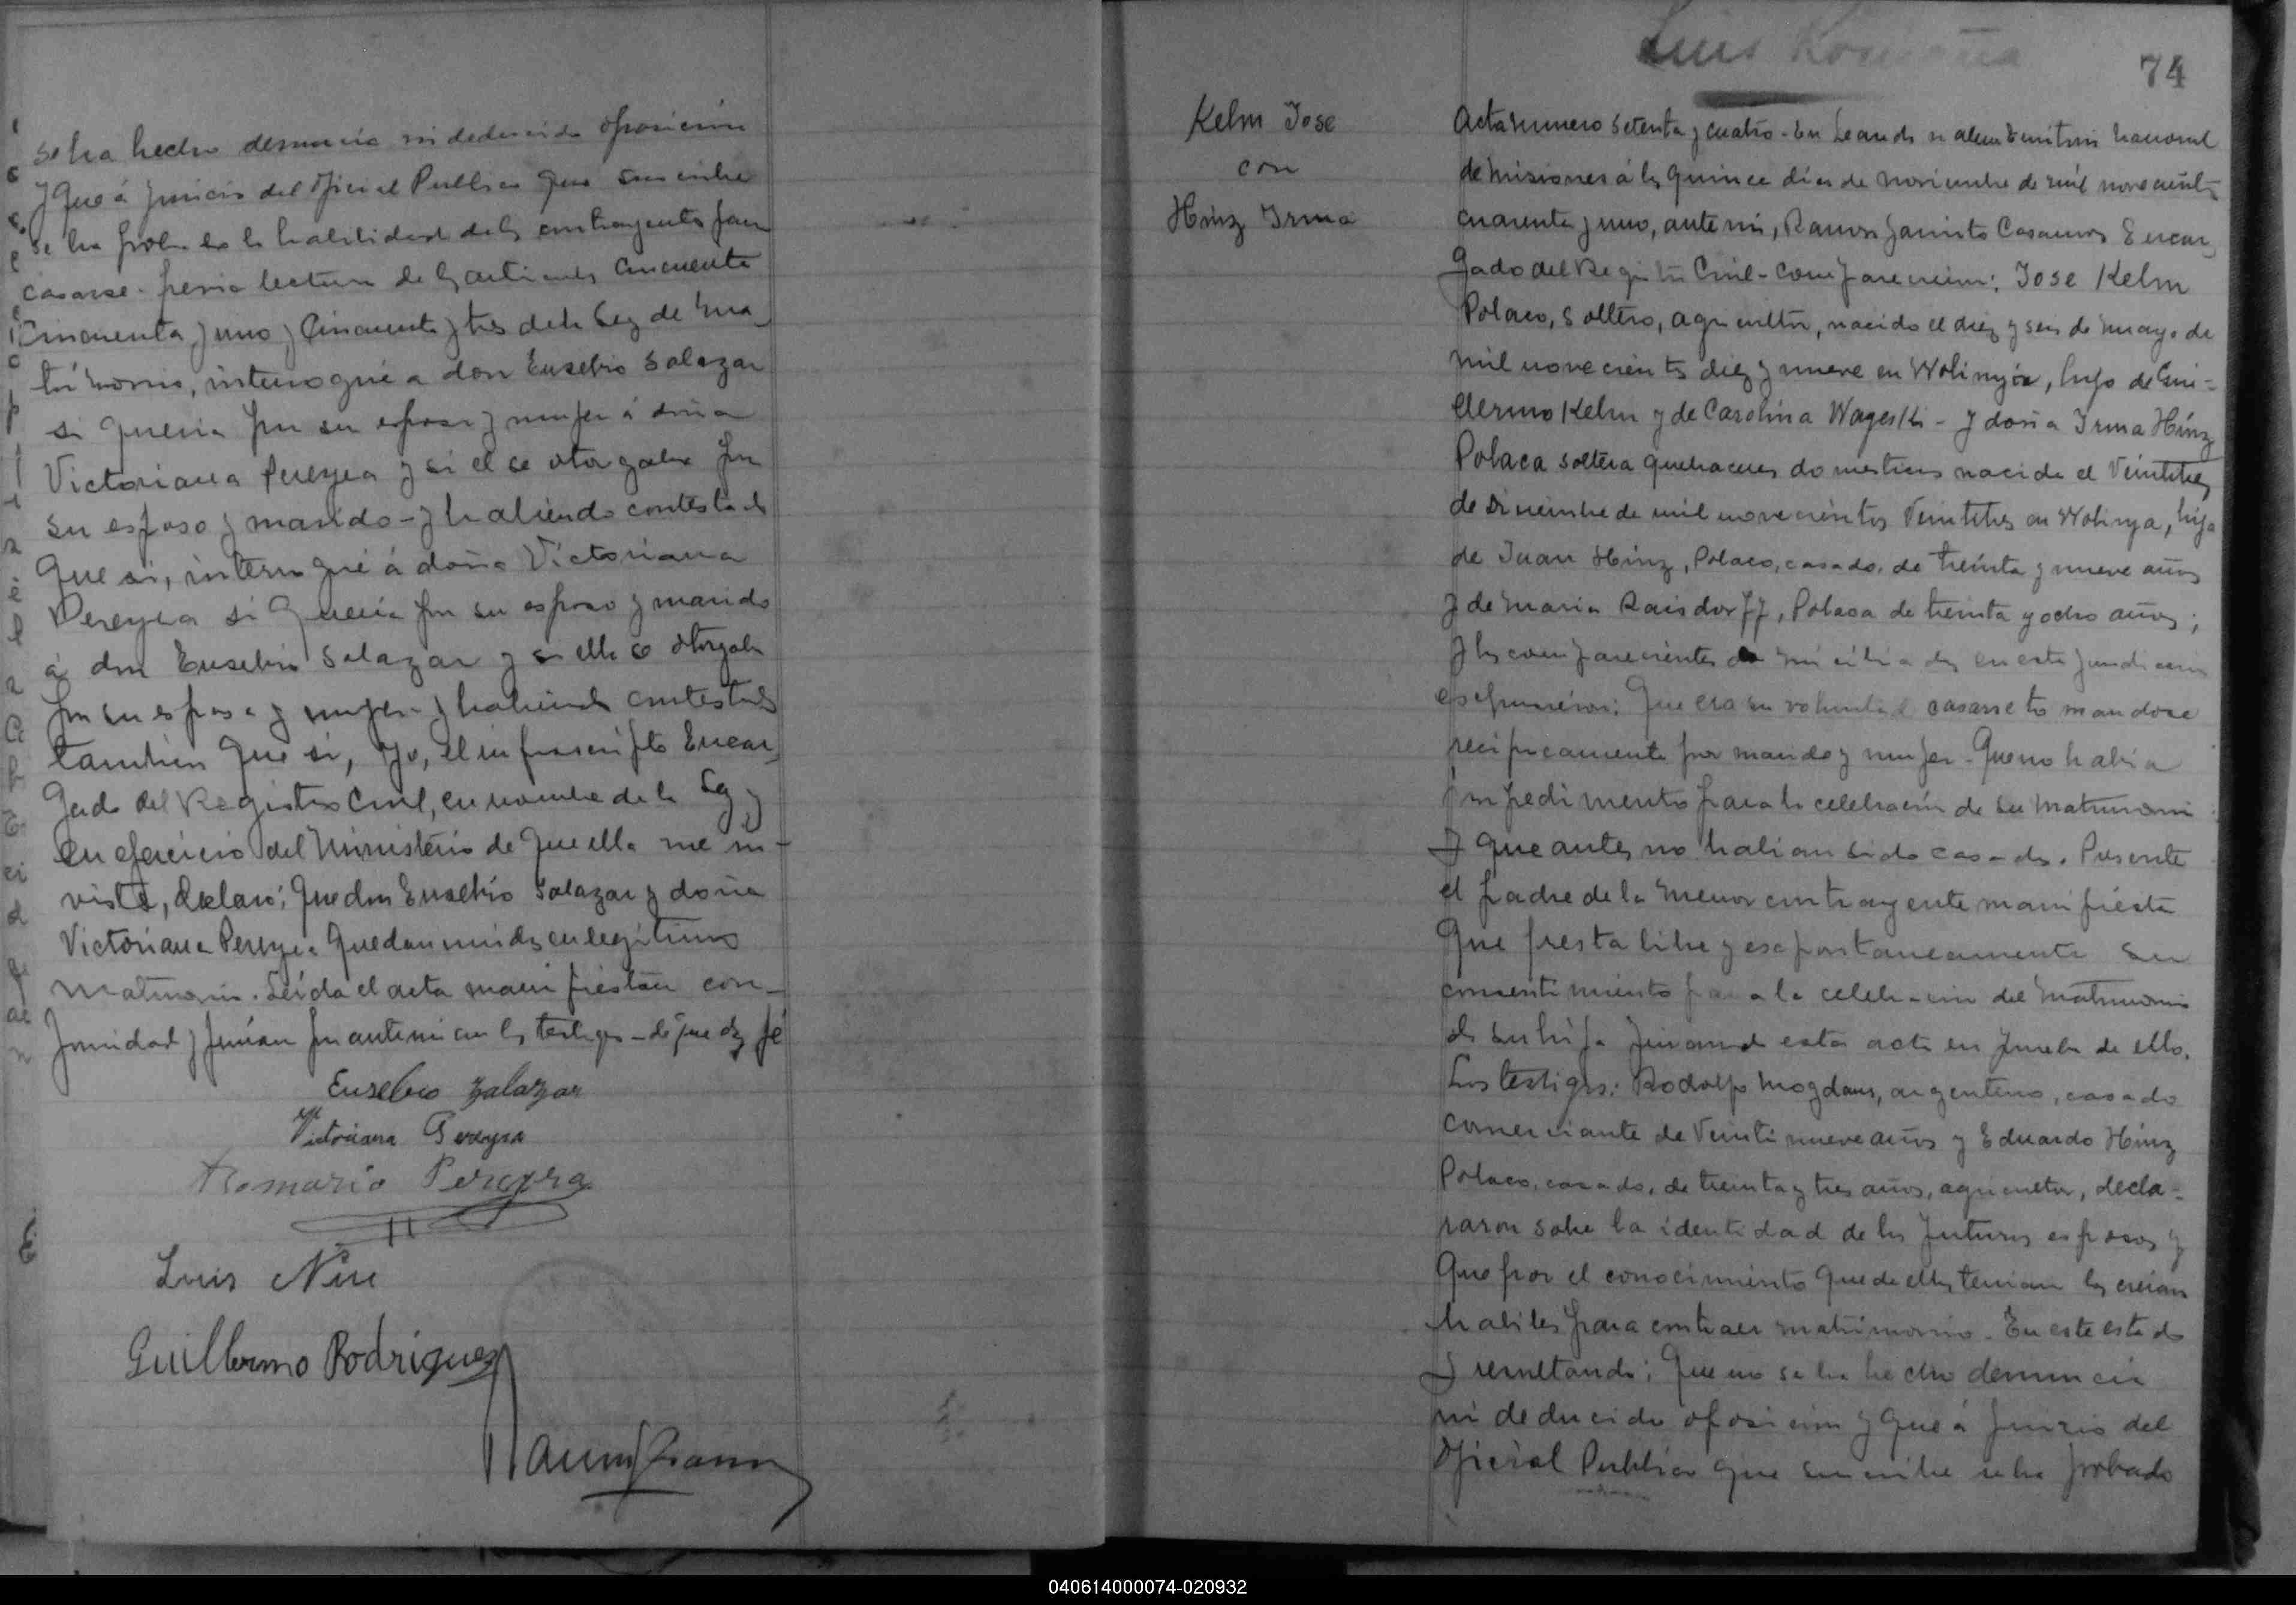 se ha hecho denuncia ni deducido oposición
y que á juicio del Oficial Publico que suscribe
se ha probado la habilidad de los contrayentes para
casarse. previa lectura de los articulos cincuenta
Cincuenta y uno y Cincuenta y tres de la Ley de Ma-
trimonio, interrogué a don Eusebio Salazar
si queria por su esposa y mujer á doña
Victoriana Pereyra y si el se otorgaba por
su esposo y marido - y habiendo contestado
que si, interrogué á doña Victoriana
Pereyra si queria por su esposo y marido
á don Eusebio Salazar y si ella se otorgaba
por su esposa y mujer y habiendo contestado
tambien que si, yo, el infrascripto Encar-
gado del Registro Civil, en nombre de la Ley y
en ejercicio del Ministerio de que ella me in-
viste, declaro: que don Eusebio Salazar y doña
Victoriana Pereyra quedan unidos en legitimo
matrimonio. Leida el acta manifiestan con-
formidad y firman por ante mi con los testigos - de que doy fé
Eusebio Zalazar
Victoriana Pereyra
Romario Pereyra
Luis
Guillermo Rodriguez
Luis
74
Kelm Jose
con
Hinz Irma
Acta numero setenta y cuatro - En Leandro n alem Territorio nacional
de misiones á los quince dias de noviembre de mil novecientos
cuarenta y uno, ante mi, Ramon Jacinto Encar-
gado del Registro Civil - Comparecieron: Jose Kelm
Polaco, soltero, agricultor, nacido el diez y seis de mayo de
mil novecientos diez y nueve en Wolinyia, hijo de Gui-
llermo Kelm y de Carolina Wageski - y doña Irma Hinz
Polaca soltera quehaceres domesticos nacida el Veintitres
de diciembre de mil novecientos Veintitres en Wolinya, hija
de Juan Hinz, Polaco, casado, de treinta y nueve años
y de Maria Raisdorff, Polaca de treinta y ocho años;
y los comparecientes domiciliados en esta jurisdiccion
expusieron: Que era su voluntad casarse tomandose
reciprocamente por marido y mujer - Que no habia
impedimento para la celebración de su matrimonio
y que antes no habian sido casados. Presente
el padre de la menor contrayente manifiesta
que presta libre y espontaneamente su
consentimiento para la celebracion del matrimonio
de su hija firmando esta acta en prueba de ello.
Los testigos: Rodolfo Mogdans, argentino, casado
comerciante de Veinti nueve años y Eduardo Hinz
Polaco, casado, de treinta y tres años, agricultor, decla-
raron sobre la identidad de los futuros esposos y
que por el conocimiento que de ellos tenian los creian
habiles para contraer matrimonio. En este estado
y resultando: Que no se ha hecho denuncia
ni deducido oposicion y que á juicio del
Oficial Publico que suscribe se ha probado
040614000074-020932